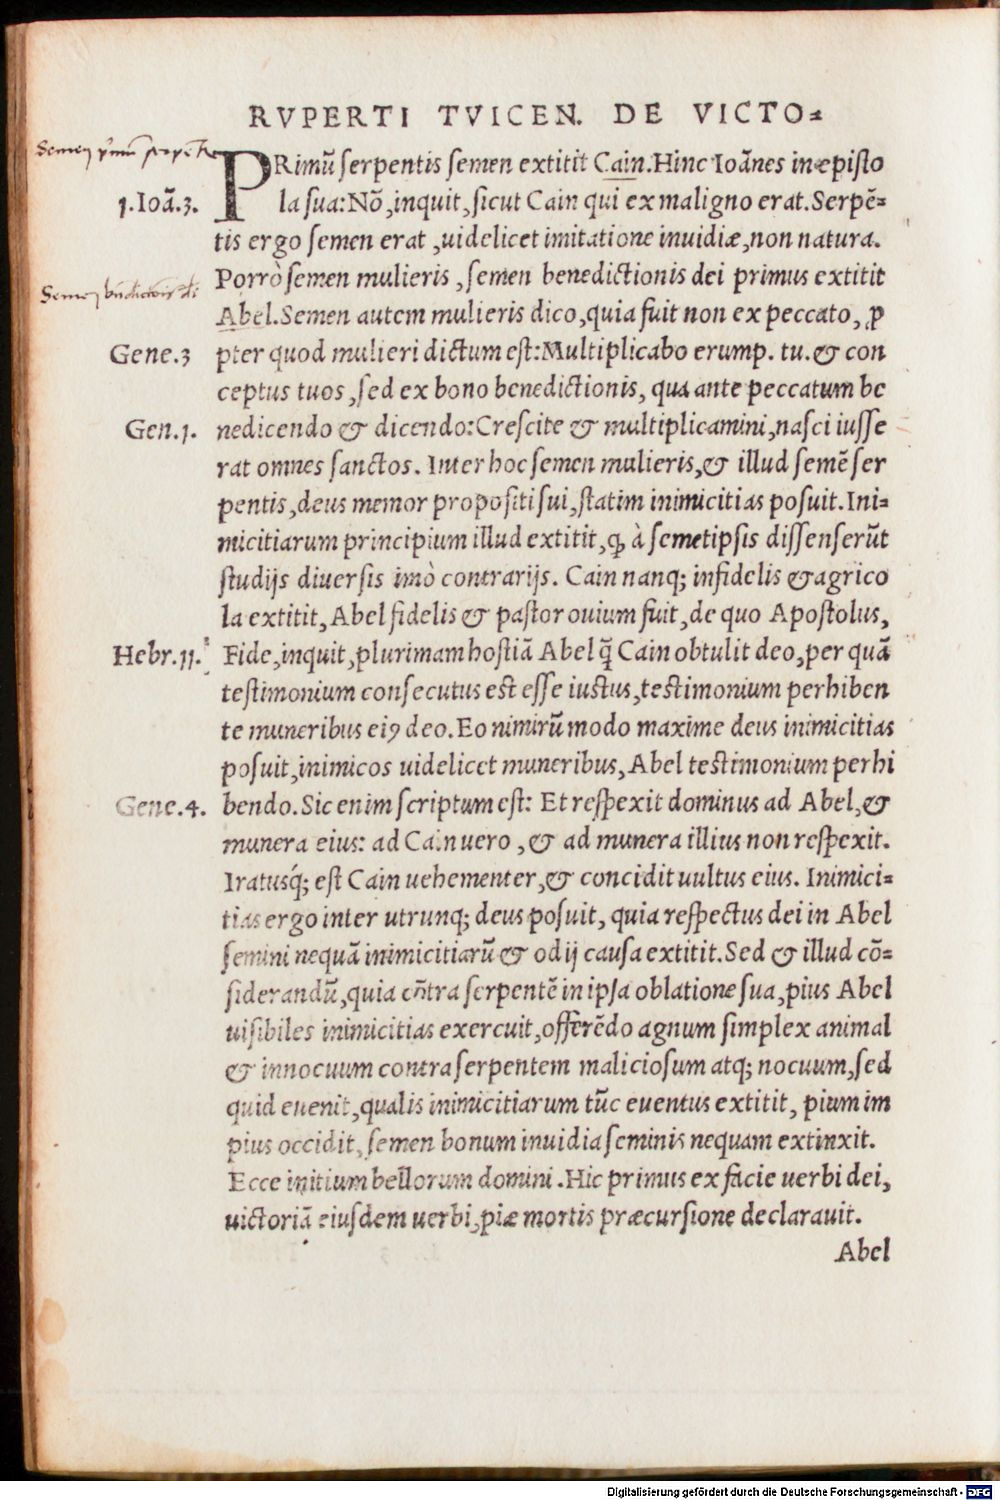 RVPERTI TVICEN. DE VICTO-
Semen
PRimũ serpentis semen extitit Cain. Hinc Ioãnes in episto
1. Ioã. 3.
la sua: Nõ, inquit, sicut Cain qui ex maligno erat. Serpẽ-
tis ergo semen erat, uidelicet imitatione inuidiæ, non natura.
Porrò semen mulieris, semen benedictionis dei primus extitit
Semen
Abel. Semen autem mulieris dico, quia fuit non ex peccato, ꝓ
Gene. 3
pter quod mulieri dictum est: Multiplicabo erump. tu. & con
ceptus tuos, sed ex bono benedictionis, qua ante peccatum be
Gen. 1.
nedicendo & dicendo: Crescite & multiplicamini, nasci iusse
rat omnes sanctos. Inter hoc semen mulieris, & illud semẽ ser
pentis, deus memor propositi sui, statim inimicitias posuit. Ini-
micitiarum principium illud extitit, ꝙ à semetipsis dissenserũt
studijs diuersis imò contrarijs. Cain nanq; infidelis & agrico
la extitit, Abel fidelis & pastor ouium fuit, de quo Apostolus,
Hebr. 11.
Fide, inquit, plurimam hostiã Abel q̃ Cain obtulit deo, per quã
testimonium consecutus est esse iustus, testimonium perhiben
te muneribus eiꝰ deo. Eo nimirũ modo maxime deus inimicitias
posuit, inimicos uidelicet muneribus, Abel testimonium perhi
Gene. 4.
bendo. Sic enim scriptum est: Et respexit dominus ad Abel, &
munera eius: ad Cain uero, & ad munera illius non respexit.
Iratusq́; est Cain uehementer, & concidit uultus eius. Inimici-
tias ergo inter utrunq; deus posuit, quia respectus dei in Abel
semini nequã inimicitiarũ & odij causa extitit. Sed & illud cõ-
siderandũ, quia cõtra serpentẽ in ipsa oblatione sua, pius Abel
uisibiles inimicitias exercuit, offerẽdo agnum simplex animal
& innocuum contra serpentem maliciosum atq; nocuum, sed
quid euenit, qualis inimicitiarum tũc euentus extitit, pium im
pius occidit, semen bonum inuidia seminis nequam extinxit.
Ecce initium bellorum domini. Hic primus ex facie uerbi dei,
uictoriã eiusdem uerbi, piæ mortis præcursione declarauit.
Abel
Digitalisierung gefördert durch die Deutsche Forschungsgemeinschaft - DFG